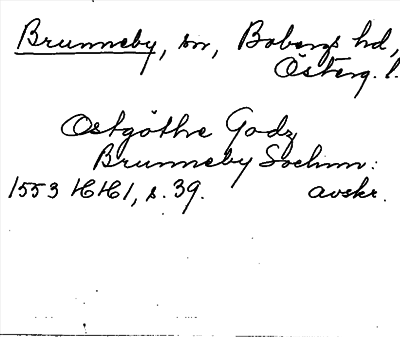 Brunneby, sn, Bobergs hd,
Österg. l.
Ostgöthe Godz
Brunneby Sochnn:
1553 HH1, s. 39. avskr.